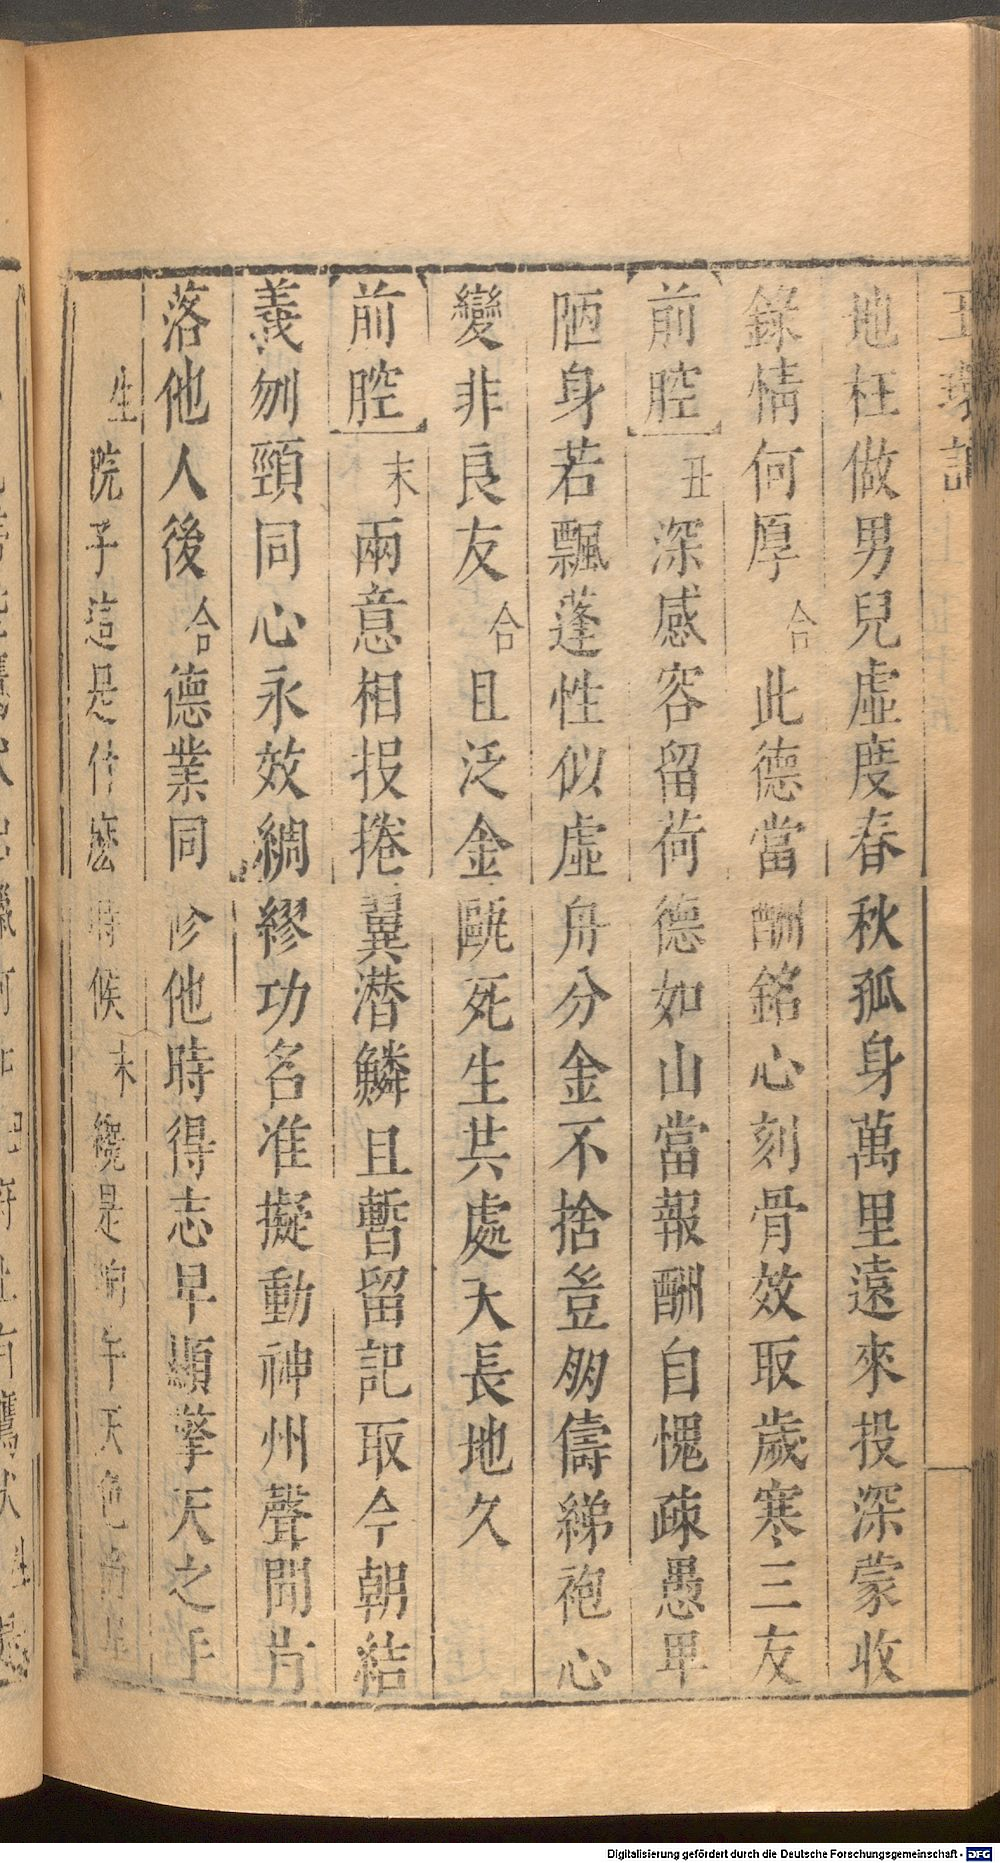 地枉做男兒虛度春秋孤身萬里遠來投深蒙收
錄情何厚合此德當酬銘心刻骨效取歲寒三友
前腔丑深感容留荷德如山當報酬自愧疎愚卑
陋身若飄蓬性似虛舟分金不捨豈朋儔綈袍心
變非良友合且泛金甌死生共處天長地久
前腔末兩意相投捲翼潛鱗且暫留記取今朝結
義刎頸同心永效綢繆功名准擬動神州聲聞片
落他人後合德業同修他時得志早顯擎天之手
生院子這是什麽時候末纔是晌午天色
Digitalisierung gefördert durch die Deutsche Forschungsgemeinschaft - DFG